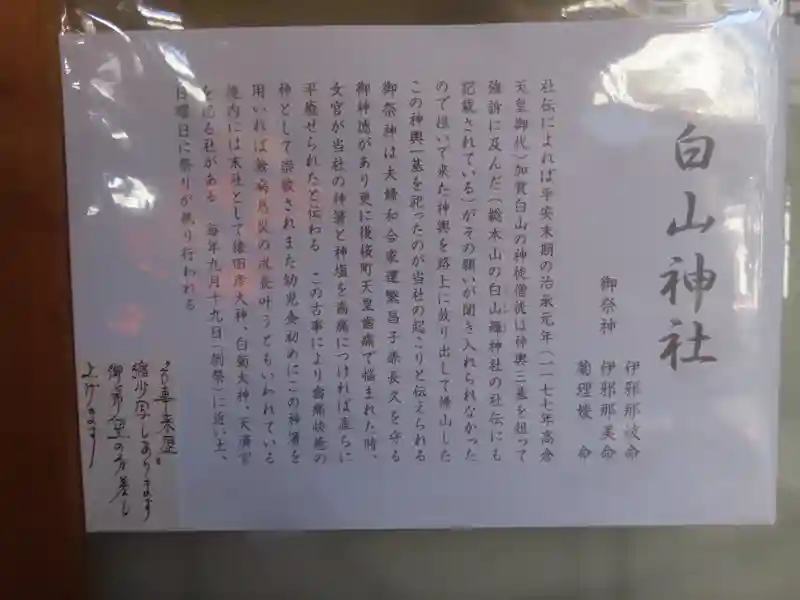 白山神社
御祭神
伊邪那岐命
伊邪那美命
菊理媛 命
社伝によれば平安末期の治承元年(一一七七年高倉
天皇御代)加賀白山の神徒僧徒は神輿三基を担って
強訴に及んだ(総本山の白山 神社の社伝にも
記載されている)がその願いが聞き入れられなかった
ので担いで来た神輿を路上に放り出して帰山した
この神輿一基を祀ったのが当社の起こりと伝えられる
御祭神は夫婦和合家運繁昌子孫長久を守る
御神徳があり更に後桜町天皇歯痛で悩まれた時、
女官が当社の神箸と神塩を歯痛につければ直らに
平癒せられたと伝わる この古事により歯痛快癒の
神として崇敬されまた幼児食初めにこの神箸を
用いれば無病息災の成長叶うともいわれている
境内には末社として猿田彦大神、白菊大神、天満宮
を祀る社がある 毎年九月十九日(例祭)に近い土、
日曜日に祭りが執り行われる
来歴
縮少写しあります
御希望の方差し
上げます